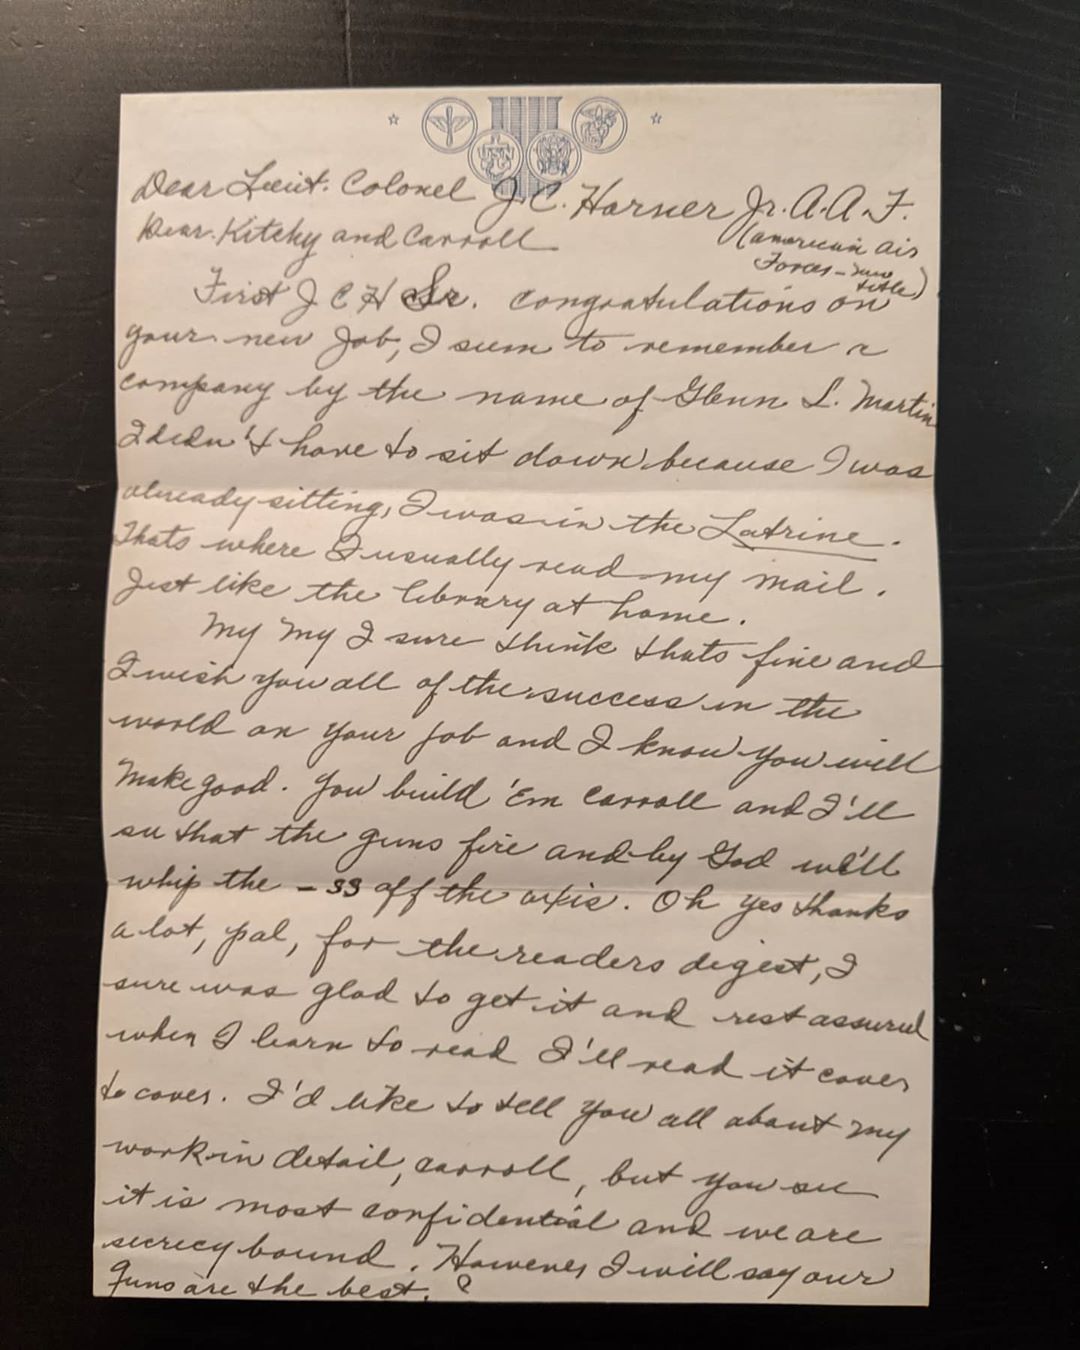 Dear Lieut. Colonel J. C. Harner Jr. A.A.F.
(american air
Forces - new
title)
Dear Kitchy and Carroll
First J C H Sr. congratulations on
your new Job, I seem to remember a
company by the name of Glenn L. Martin
I didn't have to sit down because I was
already sitting, I was in the Latrine.
Thats where I usually read my mail.
Just like the library at home.
My My I sure think thats fine and
I wish you all of the success in the
world on your job and I know you will
Make good. You build 'Em Carroll and I'll
see that the guns fire and by God we'll
whip the -ss off the axis. Oh yes thanks
a lot, pal, for the readers digest, I
sure was glad to get it and rest assured
when I learn to read I'll read it cover
to cover. I'd like to tell you all about my
work in detail, carroll, but you see
it is most confidential and we are
secrecy bound. However I will say our
guns are the best. ?
USN